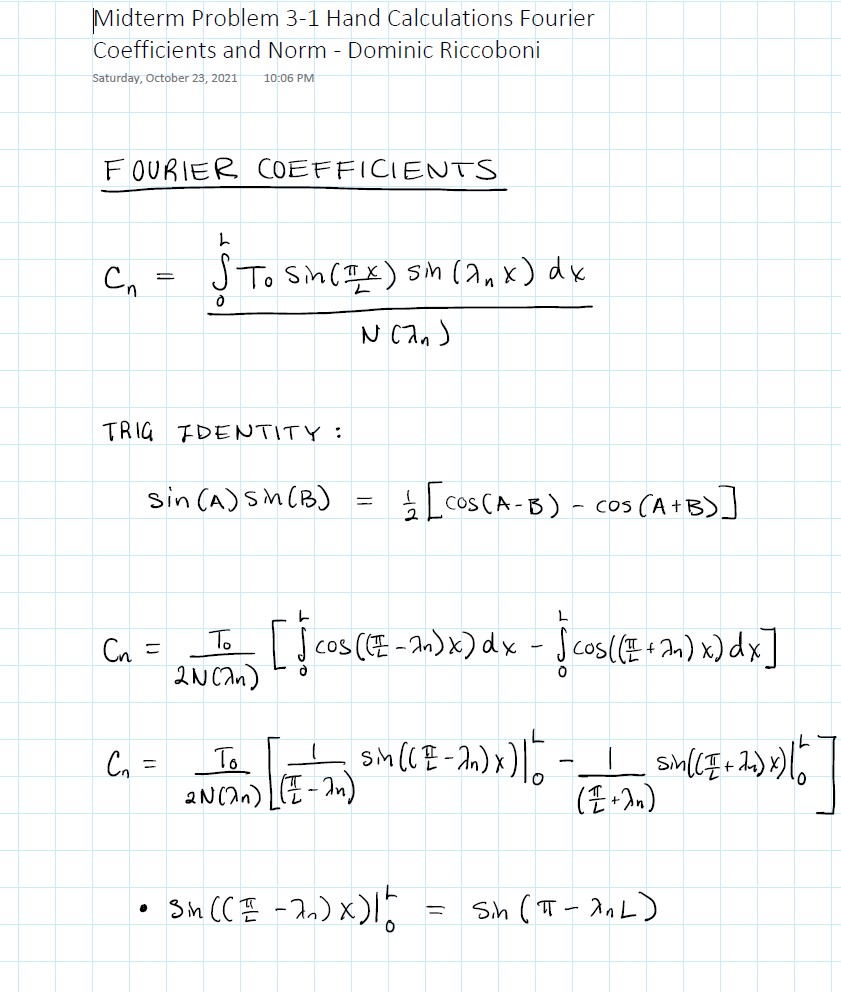 Midterm Problem 3-1 Hand Calculations Fourier
Coefficients and Norm - Dominic Riccoboni
Saturday, October 23, 2021 10:06 PM
FOURIER COEFFICIENTS
Cₙ = ∫₀ᴸ T₀ sin(πx/L) sin(λₙx) dx / N(λₙ)
TRIG IDENTITY:
sin(A) sin(B) = 1/2 [cos(A-B) - cos(A+B)]
Cₙ = T₀/2N(λₙ) [∫₀ᴸ cos((π/L - λₙ)x) dx - ∫₀ᴸ cos((π/L + λₙ)x) dx]
Cₙ = T₀/2N(λₙ) [1/(π/L - λₙ) sin((π/L - λₙ)x)|₀ᴸ - 1/(π/L + λₙ) sin((π/L + λₙ)x)|₀ᴸ]
• sin((π/L - λₙ)x)|₀ᴸ = sin(π - λₙL)